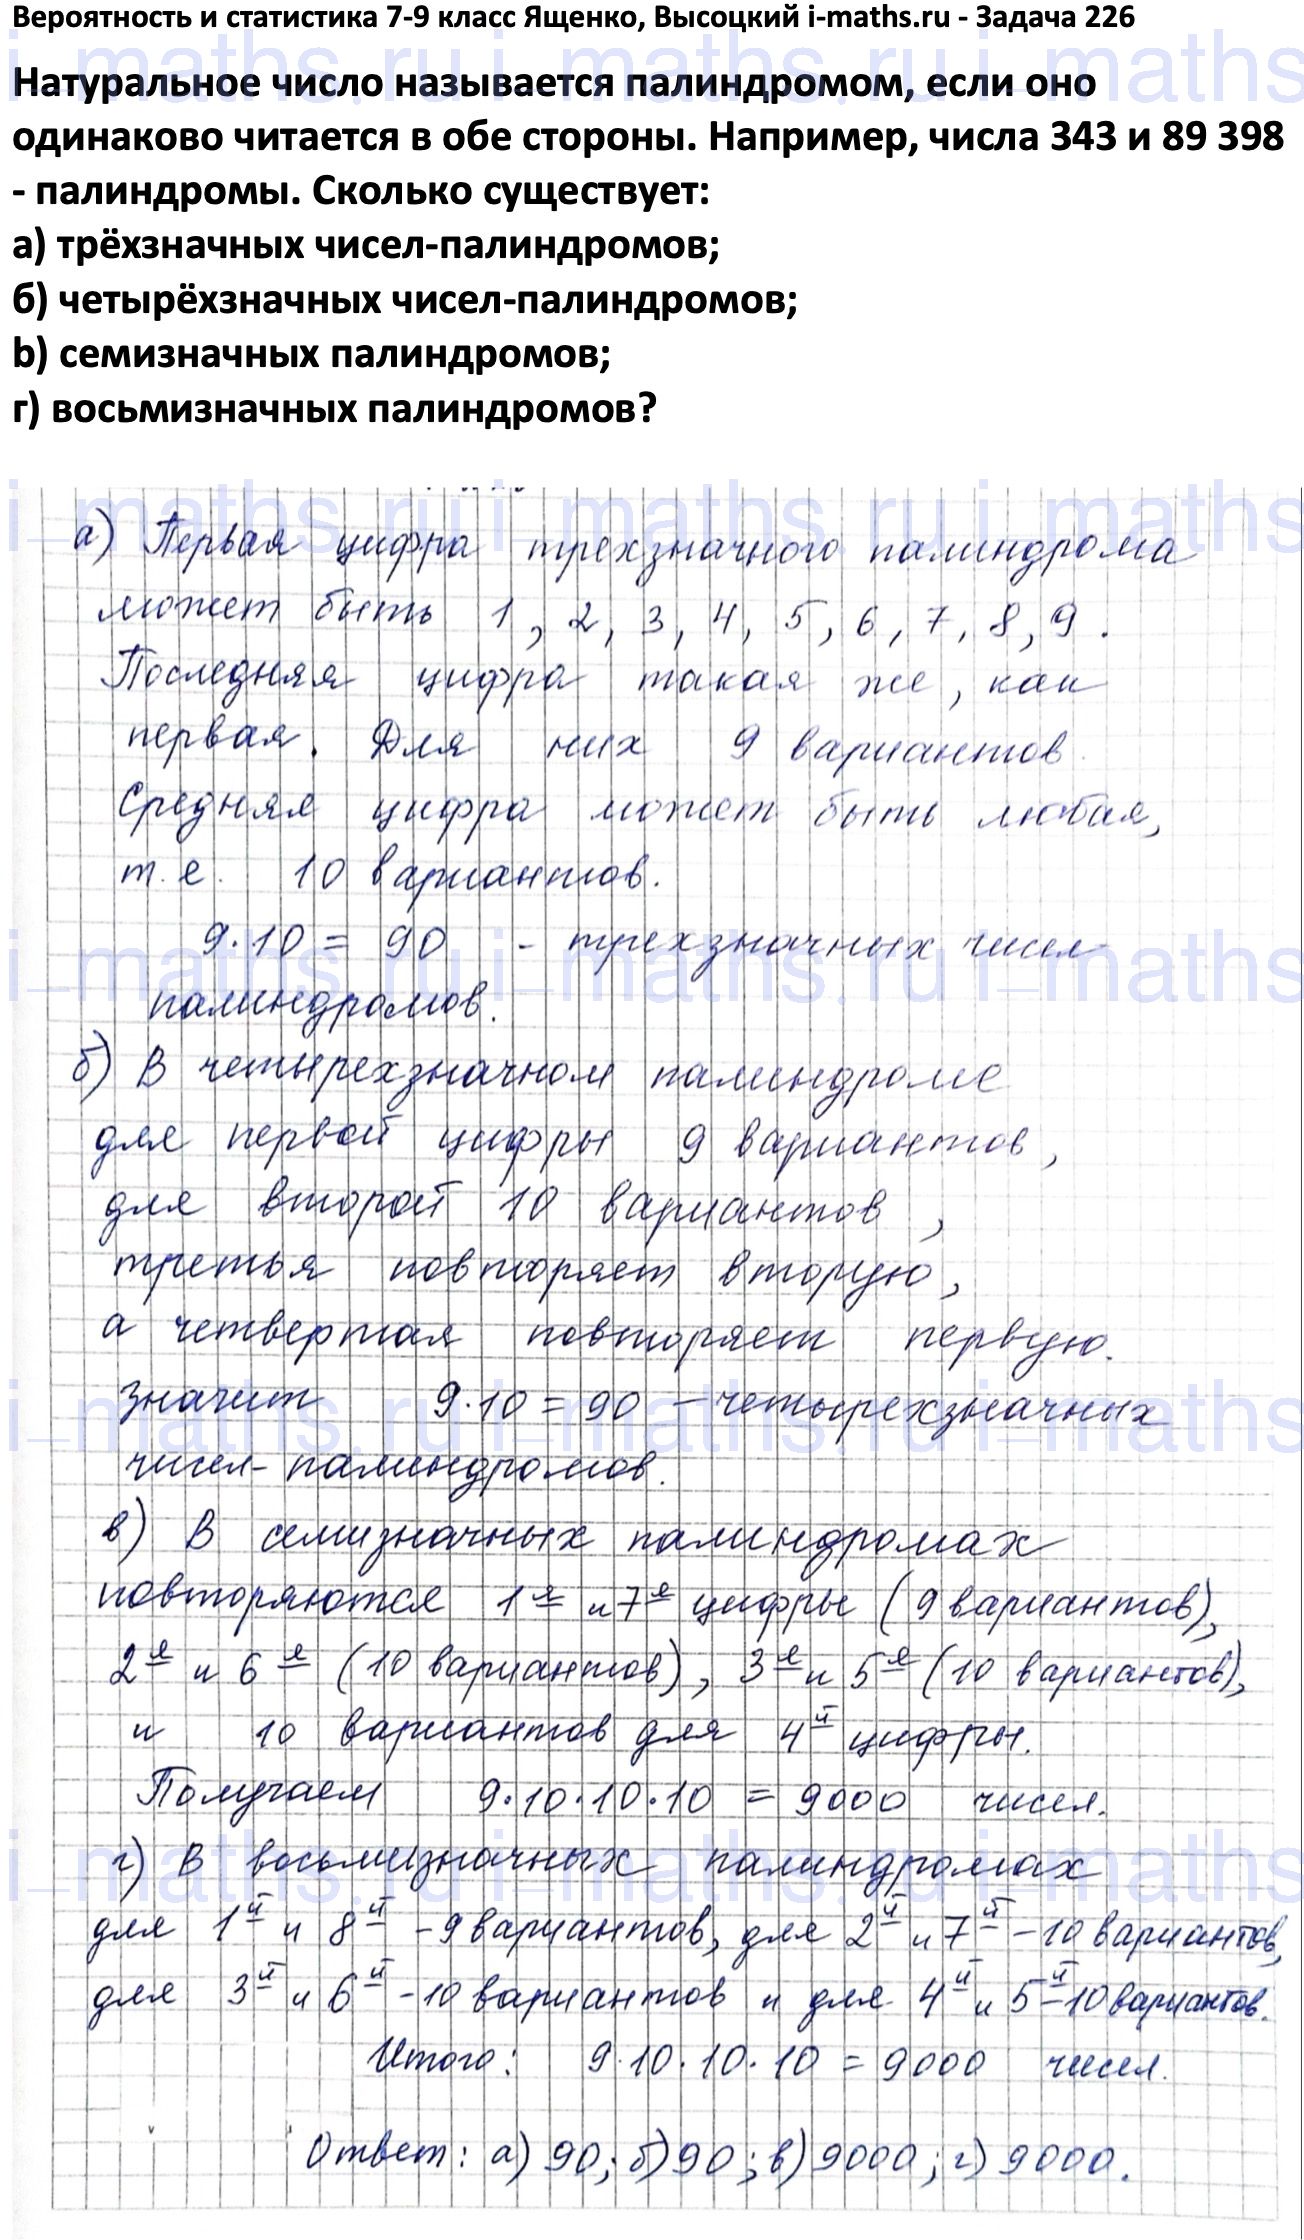 Вероятность и статистика 7-9 класс Ященко, Высоцкий i-maths.ru - Задача 226
Натуральное число называется палиндромом, если оно
одинаково читается в обе стороны. Например, числа 343 и 89 398
- палиндромы. Сколько существует:
а) трёхзначных чисел-палиндромов;
б) четырёхзначных чисел-палиндромов;
b) семизначных палиндромов;
г) восьмизначных палиндромов?
i_maths.ru i_maths.ru i_maths
а) Первая цифра трехзначного палиндрома
может быть 1, 2, 3, 4, 5, 6, 7, 8, 9.
Последняя цифра такая же, как
первая. Для них 9 вариантов.
Средняя цифра может быть любая,
т.е. 10 вариантов.
9·10 = 90 - трехзначных чисел
палиндромов.
б) В четырехзначном палиндроме
для первой цифры 9 вариантов,
для второй 10 вариантов,
третья повторяет вторую,
а четвертая повторяет первую.
Значит 9·10 = 90 – четырехзначных
чисел-палиндромов.
в) В семизначных палиндромах
повторяются 1я и 7я цифры (9 вариантов),
2я и 6я (10 вариантов), 3я и 5я (10 вариантов),
и 10 вариантов для 4й цифры.
Получаем 9·10·10·10 = 9000 чисел.
г) В восьмизначных палиндромах
для 1й и 8й - 9 вариантов, для 2й и 7й - 10 вариантов,
для 3й и 6й - 10 вариантов и для 4й и 5й - 10 вариантов.
Итого: 9·10·10·10 = 9000 чисел.
Ответ: а) 90; б) 90; в) 9000; г) 9000.